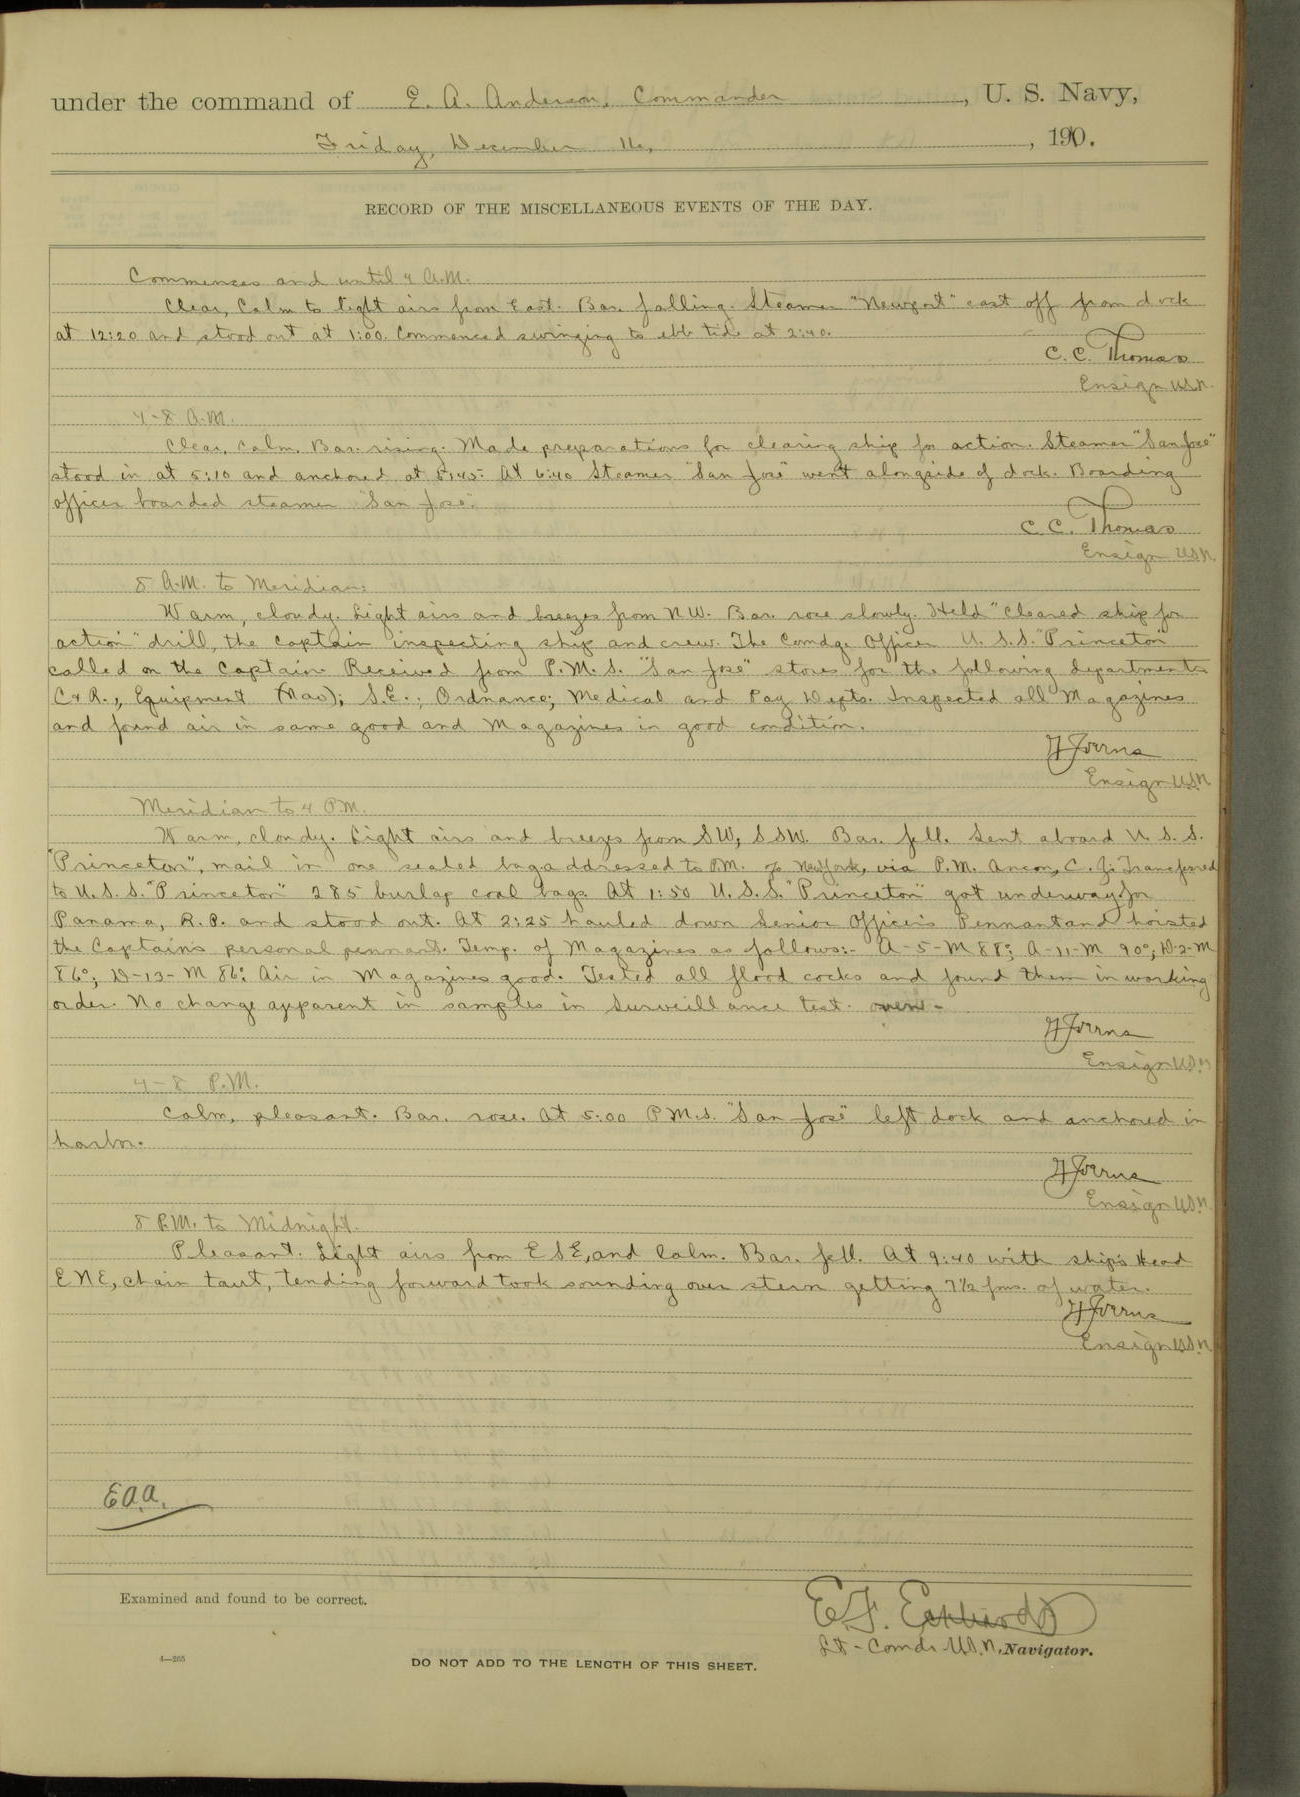 under the command of E. A. Anderson, Commander, U. S. Navy,
Friday, December 16, 1910.
RECORD OF THE MISCELLANEOUS EVENTS OF THE DAY.
Commences and until 4 A.M.
Clear, Calm to light airs from East. Bar. falling. Steamer "Newport" cast off from dock
at 12:20 and stood out at 1:00. Commenced swinging to ebb tide at 2:40.
C. C. Thomas
Ensign U.S.N.
4-8 A.M.
Clear, Calm. Bar. rising. Made preparations for clearing ship for action. Steamer "San José"
stood in at 5:10 and anchored at 5:45. At 6:40 Steamer "San José" went alongside of dock. Boarding
officer boarded steamer "San José".
C. C. Thomas
Ensign U.S.N.
8 A.M. to Meridian:
Warm, cloudy. Light airs and breezes from N.W. Bar. rose slowly. Held "cleared ship for
action" drill, the Captain inspecting ship and crew. The Comdg. Officer U. S. S. "Princeton"
called on the Captain. Received from P.M.S. "San José" stores for the following departments
C & R., Equipment (Nav); S.E.; Ordnance; Medical and Pay Depts. Inspected all Magazines
and found air in same good and Magazines in good condition.
Ensign U.S.N.
Meridian to 4 P.M.
Warm, cloudy. Light airs and breezes from SW, SSW. Bar. fell. Sent aboard U. S. S.
"Princeton", mail in one sealed bag addressed to P.M. % New York, via P.M. Ancon, C. Z. Transferred
to U. S. S. "Princeton" 285 burlap coal bags. At 1:50 U. S. S. "Princeton" got underway for
Panama, R. P. and stood out. At 2:25 hauled down Senior Officer's Pennant and hoisted
the Captain's personal pennant. Temp. of Magazines as follows:- A-5-M 88°; A-11-M 90°; D-2-M
86°; D-13-M 86°. Air in Magazines good. Tested all flood cocks and found them in working
order. No change apparent in samples in Surveillance test oven-
Ensign U.S.N.
4-8 P.M.
Calm, pleasant. Bar. rose. At 5:00 P.M.S. "San José" left dock and anchored in
harbor.
Ensign U.S.N.
8 P.M. to Midnight.
Pleasant. Light airs from ESE, and Calm. Bar. fell. At 9:40 with ship's Head
ENE, chain taut, tending forward took sounding over stern getting 7½ fms. of water.
Ensign U.S.N.
E.A.A.
Examined and found to be correct.
E. F. Eckhardt
Lt-Comdr U.S.N., Navigator.
4—265
DO NOT ADD TO THE LENGTH OF THIS SHEET.